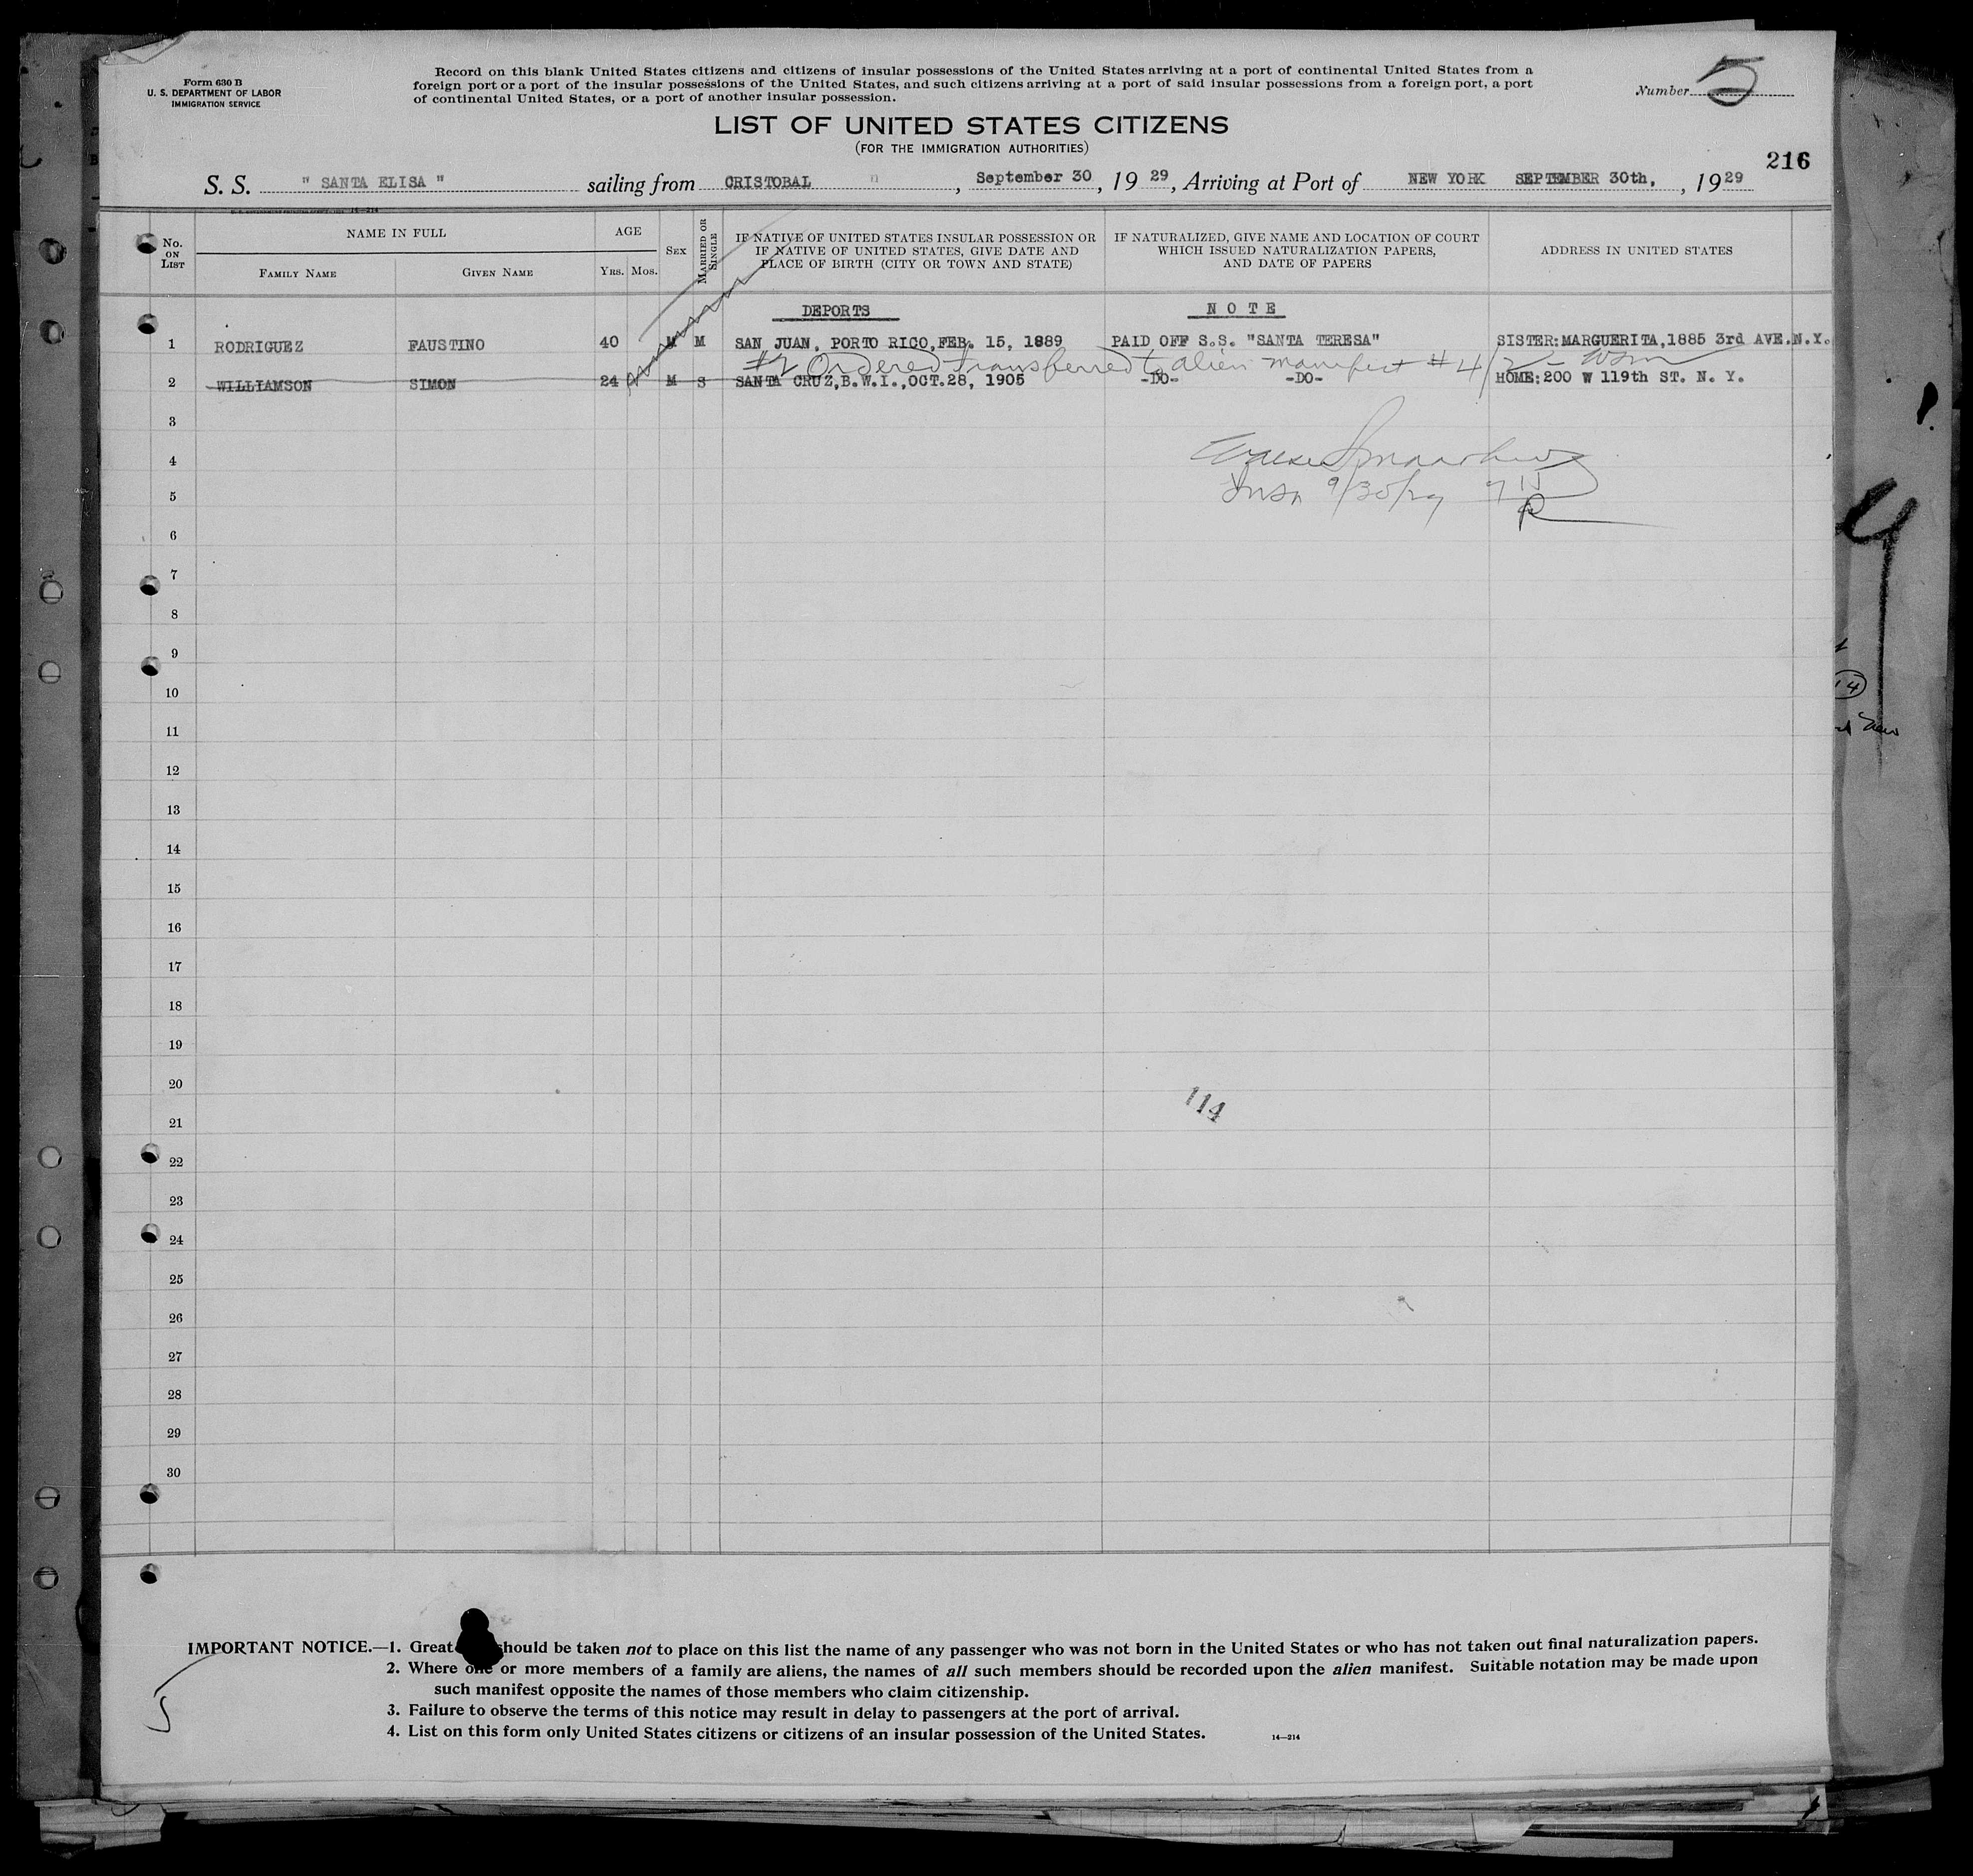 Form 630 B
U. S. DEPARTMENT OF LABOR
IMMIGRATION SERVICE
Record on this blank United States citizens and citizens of insular possessions of the United States arriving at a port of continental United States from a
foreign port or a port of the insular possessions of the United States, and such citizens arriving at a port of said insular possessions from a foreign port, a port
of continental United States, or a port of another insular possession.
Number 5
LIST OF UNITED STATES CITIZENS
(FOR THE IMMIGRATION AUTHORITIES)
216
S. S. " SANTA ELISA " sailing from CRISTOBAL, September 30, 1929, Arriving at Port of NEW YORK SEPTEMBER 30th, , 1929
No. ON LIST
NAME IN FULL
FAMILY NAME GIVEN NAME
AGE
YRS. MOS.
SEX
MARRIED OR SINGLE
IF NATIVE OF UNITED STATES INSULAR POSSESSION OR
IF NATIVE OF UNITED STATES, GIVE DATE AND
PLACE OF BIRTH (CITY OR TOWN AND STATE)
IF NATURALIZED, GIVE NAME AND LOCATION OF COURT
WHICH ISSUED NATURALIZATION PAPERS,
AND DATE OF PAPERS
ADDRESS IN UNITED STATES
DEPORTS N O T E
1 RODRIGUEZ FAUSTINO 40 M M SAN JUAN, PORTO RICO,FEB. 15, 1889 PAID OFF S.S. "SANTA TERESA" SISTER:MARGUERITA,1885 3rd AVE.N.Y.
#2 Ordered transferred to alien manifest #4/2
2 WILLIAMSON SIMON 24 M S SANTA CRUZ,B.W.I.,OCT.28, 1905 -DO- -DO- HOME:200 W 119th ST. N. Y.
3
4
5 9/30/29
6
7
8
9
10
11
12
13
14
15
16
17
18
19
20
114
21
22
23
24
25
26
27
28
29
30
IMPORTANT NOTICE.—1. Great should be taken not to place on this list the name of any passenger who was not born in the United States or who has not taken out final naturalization papers.
2. Where one or more members of a family are aliens, the names of all such members should be recorded upon the alien manifest. Suitable notation may be made upon
such manifest opposite the names of those members who claim citizenship.
3. Failure to observe the terms of this notice may result in delay to passengers at the port of arrival.
4. List on this form only United States citizens or citizens of an insular possession of the United States.
14—214
5